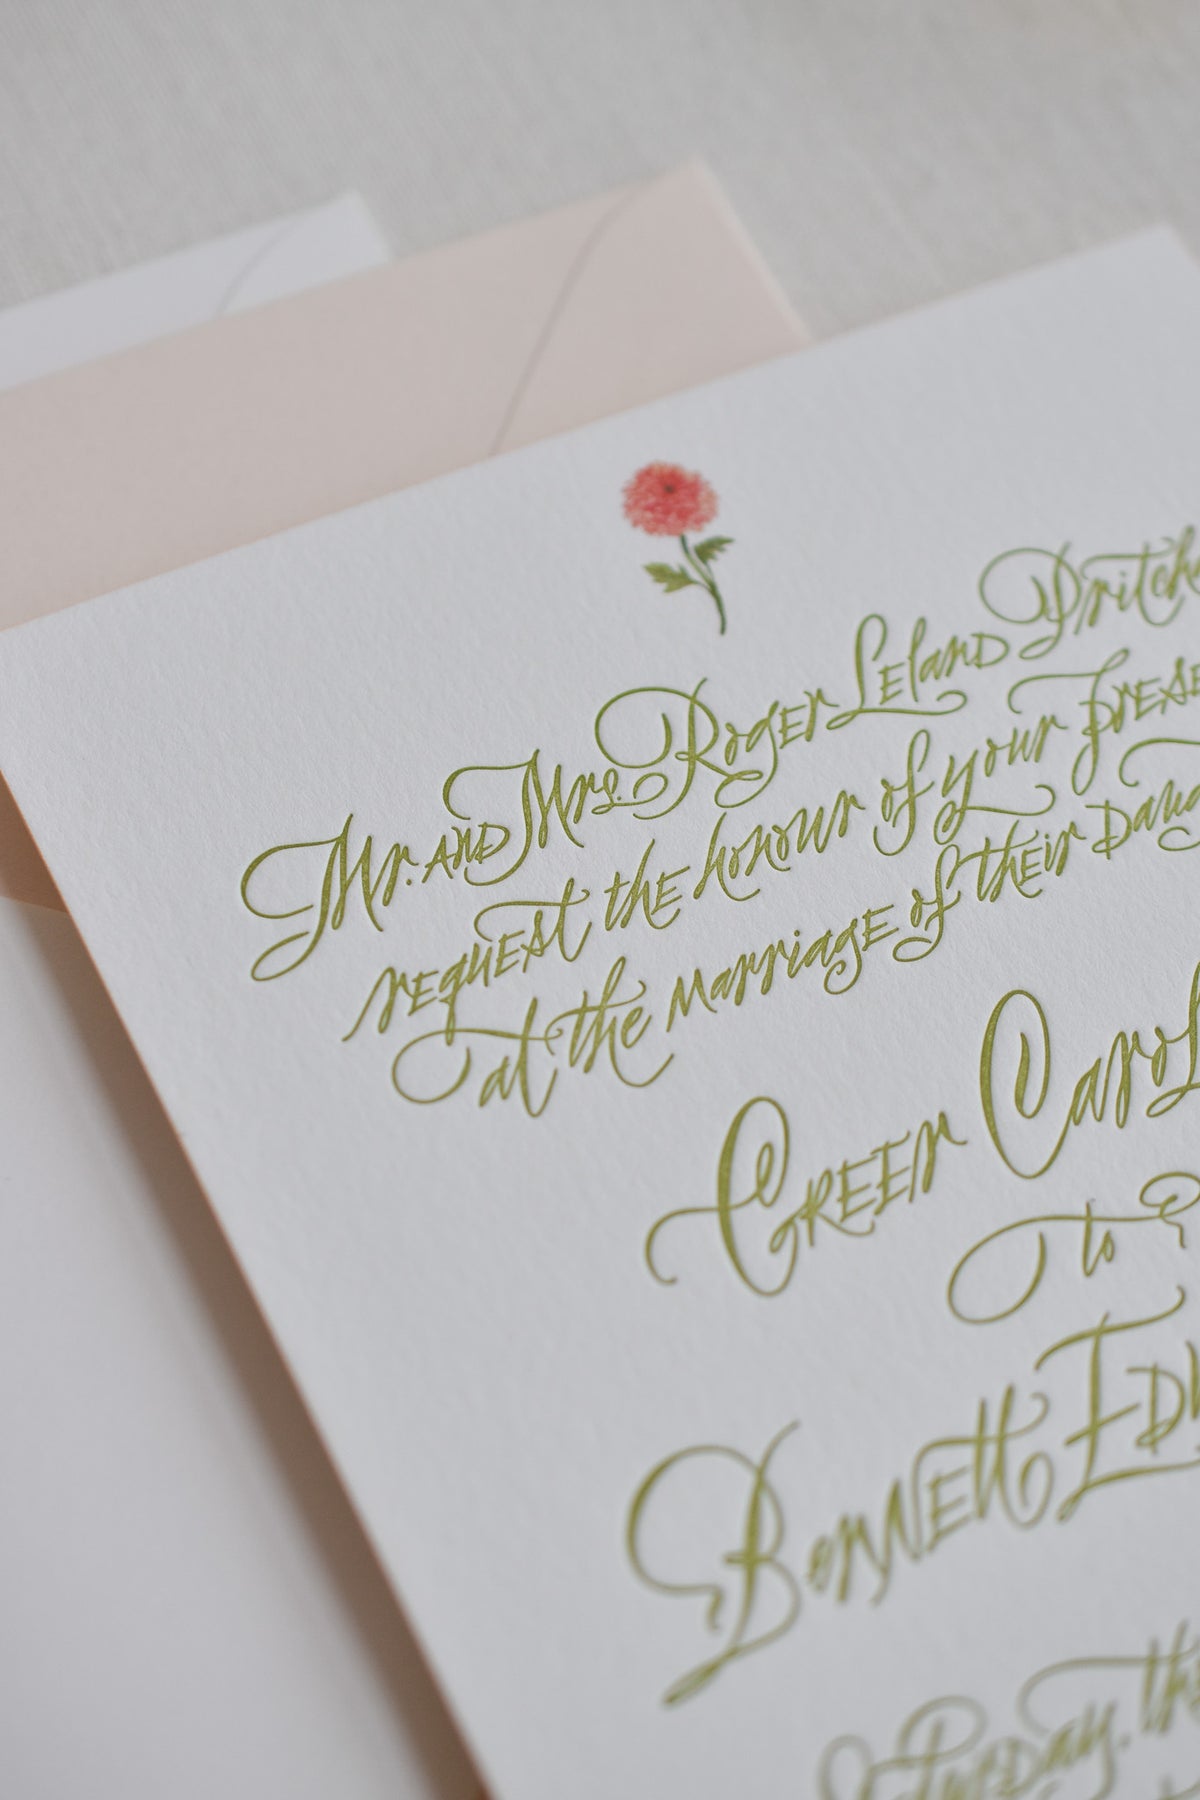 Mr. and Mrs. Roger Leland Pritch
request the honour of your prese
at the marriage of their daug
Greer Carol
to
Bennett Edw
Tuesday, the